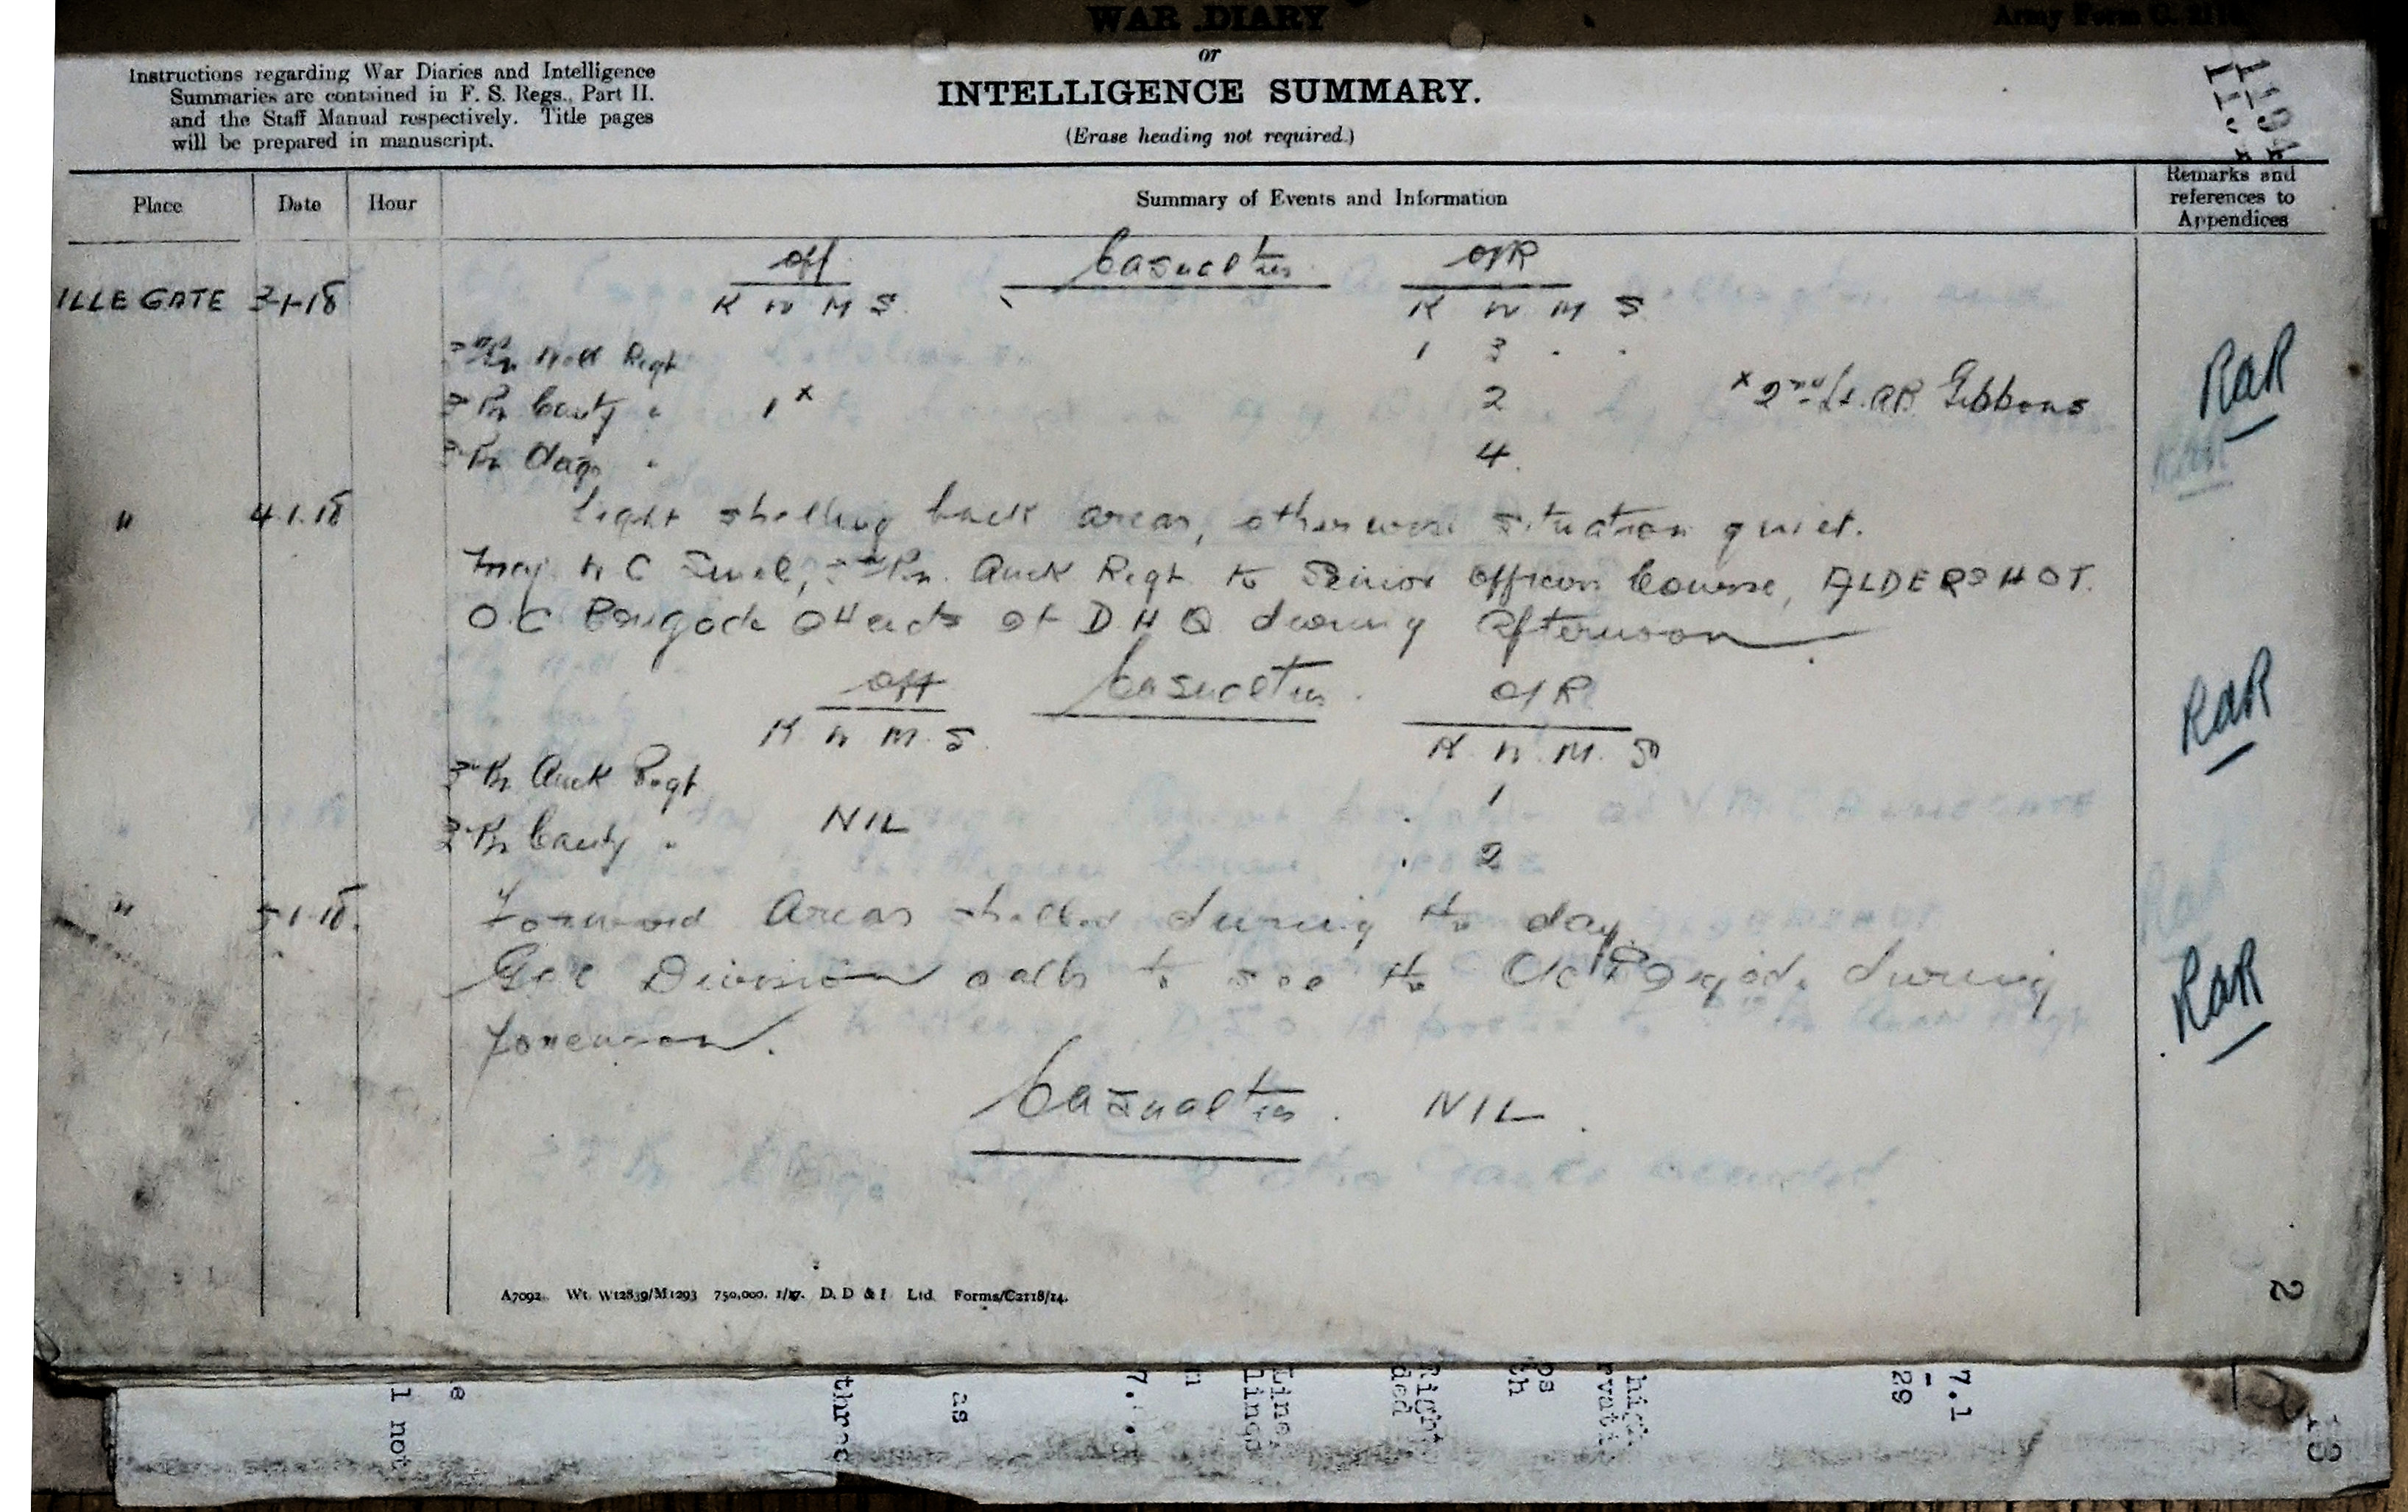 WAR DIARY
or
INTELLIGENCE SUMMARY.
(Erase heading not required.)
Army Form C. 2118
Instructions regarding War Diaries and Intelligence
Summaries are contained in F. S. Regs., Part II.
and the Staff Manual respectively. Title pages
will be prepared in manuscript.
Place Date Hour Summary of Events and Information Remarks and
references to
Appendices
Off Casualties O/R
ILLE GATE 3-1-18 K W M S K W M S
3rd Bn Well Regt 1 3 . .
3 Bn Canty " 1x 2 x 2nd/Lt. AR Gibbons RaR
3 Bn Otago " 4
" 4.1.18 Light shelling back areas, otherwise situation quiet.
Maj W C Sinel, 3rd Bn. Auck Regt to Senior Officers Course, ALDERSHOT.
O.C Brigade attends at D H Q during afternoon
Off Casualties. O/R RaR
K W M. S. K. W. M. S
3 Bn Auck Regt 1
3 Bn Canty " NIL 2
" 5-1-18. Forward Areas shelled during the day.
GOC Division calls to see the OC Brigade during RaR
forenoon.
Casualties. NIL.
A7092. Wt. W12839/M1293 750,000. 1/17. D. D & L Ltd Forms/C2118/14.
2